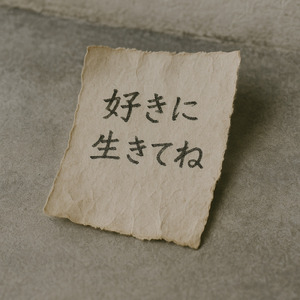 好きに
生きてね